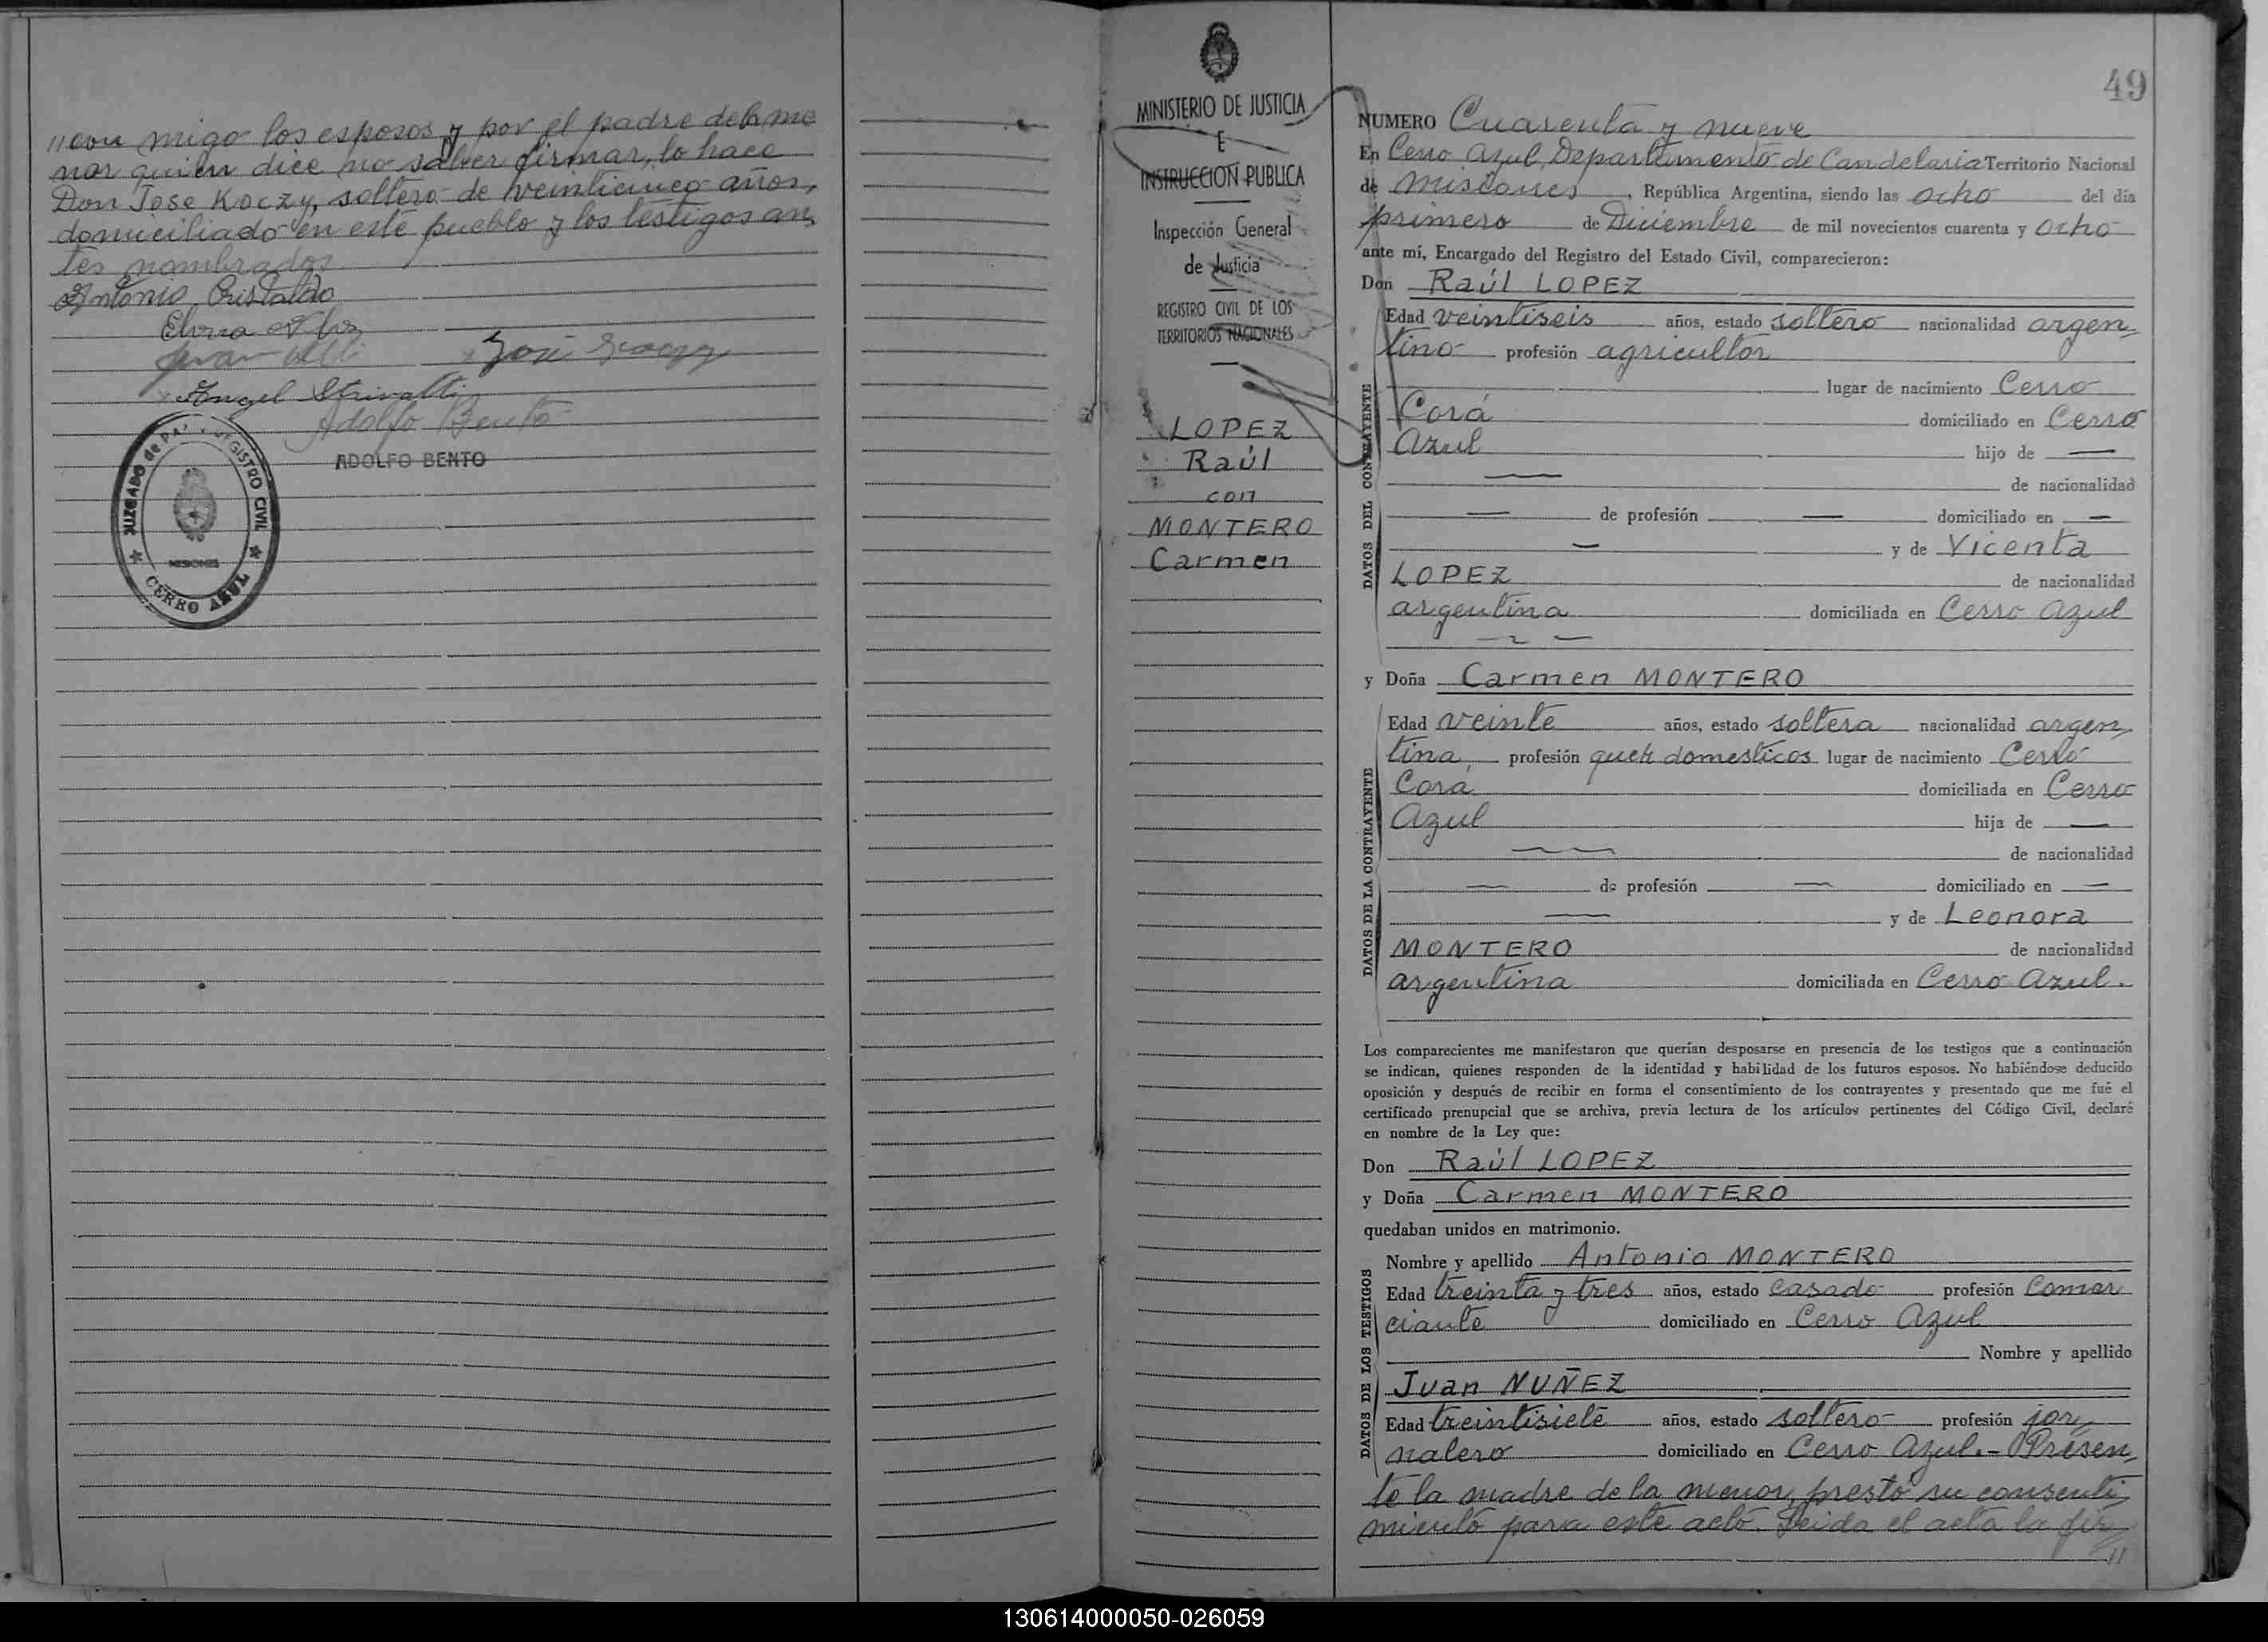 //con migo los esposos y por el padre dela me
nor quien dice no saber firmar, lo hace
Don Jose Koczy, soltero de veinticinco años,
domiciliado en este pueblo y los testigos an
tes nombrados
Antonio Cristaldo
Elvira
Juan
José
Angel
Adolfo Bento
ADOLFO BENTO
JUZGADO de PAZ Y REGISTRO CIVIL
MISIONES
CERRO AZUL
MINISTERIO DE JUSTICIA
E
INSTRUCCION PUBLICA
Inspección General
de Justicia
REGISTRO CIVIL DE LOS
TERRITORIOS NACIONALES
LOPEZ
Raúl
con
MONTERO
Carmen
49
NUMERO Cuarenta y nueve
En Cerro Azul, Departamento de Candelaria Territorio Nacional
de Misiones, República Argentina, siendo las ocho del día
primero de Diciembre de mil novecientos cuarenta y ocho
ante mí, Encargado del Registro del Estado Civil, comparecieron:
Don Raúl LOPEZ
DATOS DEL CONTRAYENTE
Edad veintiseis años, estado soltero nacionalidad argen
tino profesión agricultor
lugar de nacimiento Cerro
Corá domiciliado en Cerro
Azul hijo de —
— de nacionalidad
— de profesión — domiciliado en —
— y de Vicenta
LOPEZ de nacionalidad
argentina domiciliada en Cerro Azul
y Doña Carmen MONTERO
DATOS DE LA CONTRAYENTE
Edad veinte años, estado soltera nacionalidad argen
tina, profesión queh domesticos lugar de nacimiento Cerro
Corá domiciliada en Cerro
Azul hija de —
— de nacionalidad
— de profesión — domiciliado en —
— y de Leonora
MONTERO de nacionalidad
argentina domiciliada en Cerro Azul.
Los comparecientes me manifestaron que querían desposarse en presencia de los testigos que a continuación
se indican, quienes responden de la identidad y habilidad de los futuros esposos. No habiéndose deducido
oposición y después de recibir en forma el consentimiento de los contrayentes y presentado que me fué el
certificado prenupcial que se archiva, previa lectura de los artículos pertinentes del Código Civil, declaré
en nombre de la Ley que:
Don Raúl LOPEZ
y Doña Carmen MONTERO
quedaban unidos en matrimonio.
DATOS DE LOS TESTIGOS
Nombre y apellido Antonio MONTERO
Edad treinta y tres años, estado casado profesión Comer
ciante domiciliado en Cerro Azul
Nombre y apellido
Juan NUÑEZ
Edad treintisiete años, estado soltero profesión jor
nalero domiciliado en Cerro Azul.- Presen
te la madre de la menor, prestó su consenti
miento para este acto. Leida el acta la fir
//
130614000050-026059